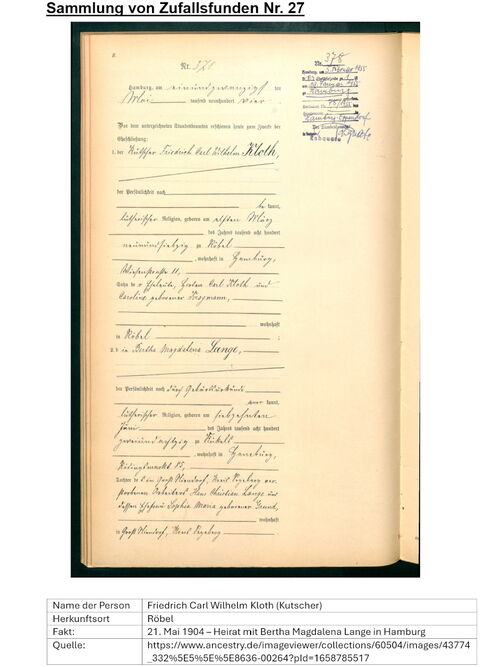 Sammlung von Zufallsfunden Nr. 27
Nr. 378
Hamburg, am einundzwanzigsten
Mai tausend neunhundert vier
Vor dem unterzeichneten Standesbeamten erschienen heute zum Zwecke der
Eheschließung:
1. der Kutscher Friedrich Carl Wilhelm Kloth,
der Persönlichkeit nach
be kannt,
lutherischer Religion, geboren am elften März
des Jahres tausend acht hundert
neunundsiebzig zu Röbel
, wohnhaft in Hamburg,
11,
Sohn de r Eheleute, Carl Kloth und
Caroline geborener
wohnhaft
in Röbel
2. d ie Bertha Magdalena Lange,
der Persönlichkeit nach durch Geburtsurkunde
kannt,
lutherischer Religion, geboren am siebzehnten
Juni des Jahres tausend acht hundert
zweiundachtzig zu Kükels
, wohnhaft in Hamburg,
15,
Tochter de s in Groß Niendorf, Kreis Segeberg ver-
storbenen Arbeiters Hans Christian Lange und
dessen Ehefrau Sophia Maria geborener
wohnhaft
in Groß Niendorf, Kreis Segeberg
Nr. 378
Hamburg
Der Standesbeamte
Name der Person Friedrich Carl Wilhelm Kloth (Kutscher)
Herkunftsort Röbel
Fakt: 21. Mai 1904 – Heirat mit Bertha Magdalena Lange in Hamburg
Quelle: https://www.ancestry.de/imageviewer/collections/60504/images/43774
_332%5E5%5E%5E8636-00264?pId=1658785517